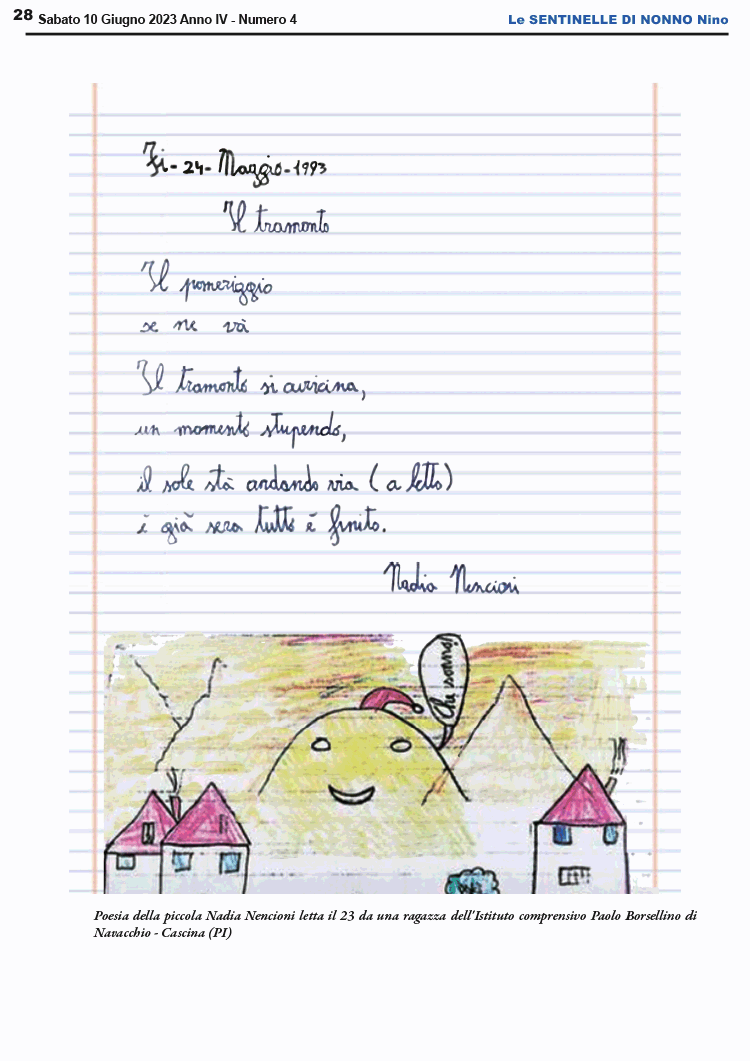 28 Sabato 10 Giugno 2023 Anno IV - Numero 4 Le SENTINELLE DI NONNO Nino
Fi-24-Maggio-1993
Il tramonto
Il pomeriggio
se ne và
Il tramonto si avvicina,
un momento stupendo,
il sole stà andando via (a letto)
è già sera tutto è finito.
Nadia Nencioni
Che sonno!
Poesia della piccola Nadia Nencioni letta il 23 da una ragazza dell'Istituto comprensivo Paolo Borsellino di
Navacchio - Cascina (PI)